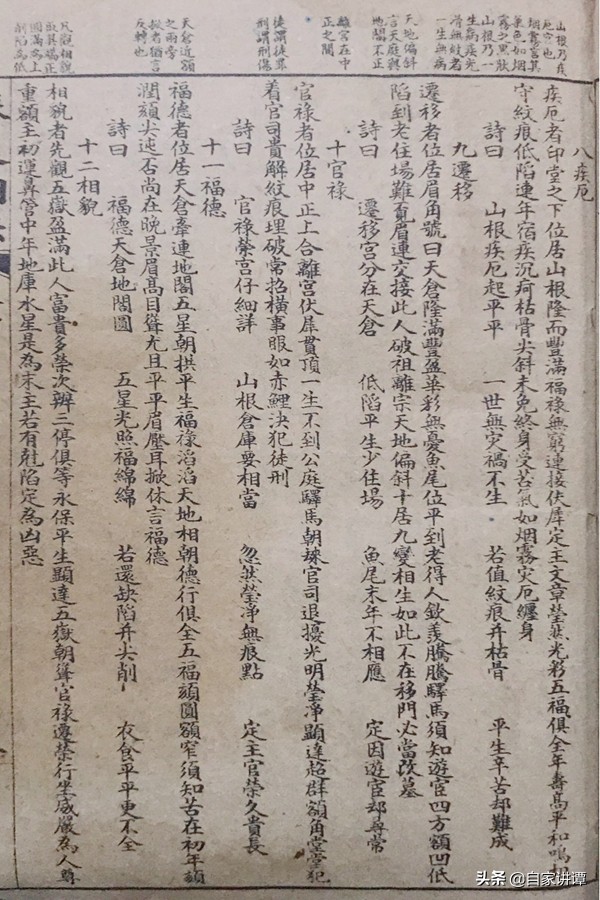 山根乃疾
厄宮也
烟霧言其
氣色如烟
霧之黑狀
山根乃一
生病疾光
滑無紋者
一生無病
天地偏斜
言天庭與
地閣不正
離宮在中
正之間
徒謂徒罪
刑謂刑傷
天倉近額
之兩旁
掀者猶言
反轉也
凡觀相貌
其端正
圓滿為上
削陷為低
八疾厄
疾厄者印堂之下位居山根隆而豐滿福祿無窮連接伏犀定主文章瑩然光彩五福俱全年壽高平和鳴相
守紋痕低陷連年宿疾沉疴枯骨尖斜未免終身受苦氣如烟霧灾厄纏身
詩曰 山根疾厄起平平 一世無灾禍不生 若值紋痕并枯骨 平生辛苦却難成
九遷移
遷移者位居眉角號曰天倉隆滿豐盈華彩無憂魚尾位平到老得人欽羨騰騰驛馬須知遊宦四方額凹低
陷到老住場難覓眉連交接此人破祖離宗天地偏斜十居九變相生如此不在移門必當改墓
詩曰 遷移宮分在天倉 低陷平生少住場 魚尾末年不相應 定因遊宦却尋常
十官祿
官祿者位居中正上合離宮伏犀貫頂一生不到公庭驛馬朝歸官司退擾光明瑩淨顯達超群額角堂堂犯
着官司貴解紋痕理破常招橫事眼如赤鯉決犯徒刑
詩曰 官祿榮宮仔細詳 山根倉庫要相當 忽然瑩淨無痕點 定主官榮久貴長
十一福德
福德者位居天倉牽連地閣五星朝拱平生福祿滔滔天地相朝德行俱全五福頦圓額窄須知苦在初年額
潤頦尖迍否尚在晚景眉高目聳尤且平平眉壓耳掀休言福德
詩曰 福德天倉地閣圓 五星光照福綿綿 若還缺陷并尖削 衣食平平更不全
十二相貌
相貌者先觀五嶽盈滿此人富貴多榮次辨三停俱等永保平生顯達五嶽朝聳官祿遷榮行坐威嚴為人尊
重額主初運鼻管中年地庫水星是為末主若有尅陷定為凶惡
头条 @自家讲谭